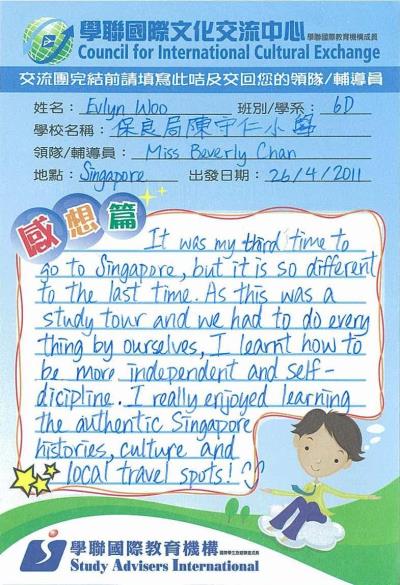 學聯國際文化交流中心 學聯國際教育機構成員
Council for International Cultural Exchange
交流團完結前請填寫此咭及交回您的領隊/輔導員
姓名： Evlyn Woo 班別/學系： 6D
學校名稱： 保良局陳守仁小學
領隊/輔導員： Miss Beverly Chan
地點： Singapore 出發日期： 26/4/2011
感想篇
It was my third time to
go to Singapore, but it is so different
to the last time. As this was a
study tour and we had to do every
thing by ourselves, I learnt how to
be more independent and self-
dicipline. I really enjoyed learning
the authentic Singapore
histories, culture and
local travel spots!
學聯國際教育機構
Study Advisers International